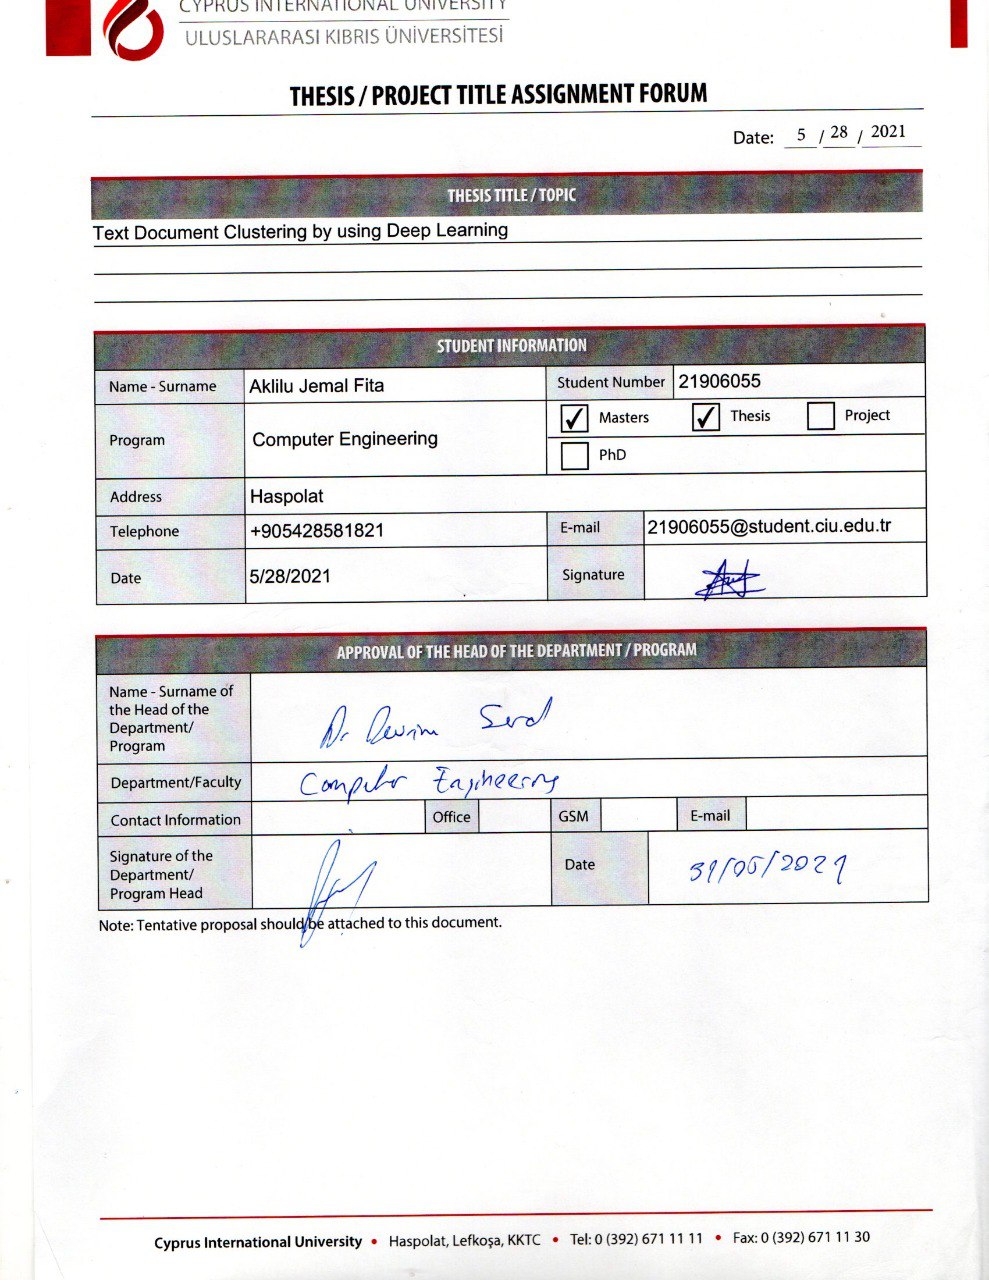 CYPRUS INTERNATIONAL UNIVERSITY
ULUSLARARASI KIBRIS ÜNİVERSİTESİ
THESIS / PROJECT TITLE ASSIGNMENT FORUM
Date: 5 / 28 / 2021
THESIS TITLE / TOPIC
Text Document Clustering by using Deep Learning
STUDENT INFORMATION
Name - Surname Aklilu Jemal Fita Student Number 21906055
Program Computer Engineering ✓ Masters ✓ Thesis Project
PhD
Address Haspolat
Telephone +905428581821 E-mail 21906055@student.ciu.edu.tr
Date 5/28/2021 Signature
APPROVAL OF THE HEAD OF THE DEPARTMENT / PROGRAM
Name - Surname of
the Head of the
Department/
Program
Dr Devrim Seral
Department/Faculty Computer Engineering
Contact Information Office GSM E-mail
Signature of the
Department/
Program Head
Date 31/05/2021
Note: Tentative proposal should be attached to this document.
Cyprus International University • Haspolat, Lefkoşa, KKTC • Tel: 0 (392) 671 11 11 • Fax: 0 (392) 671 11 30